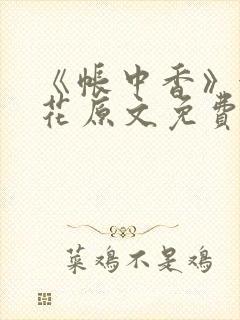 《帐中香》
花原文免费
菜鸡不是鸡